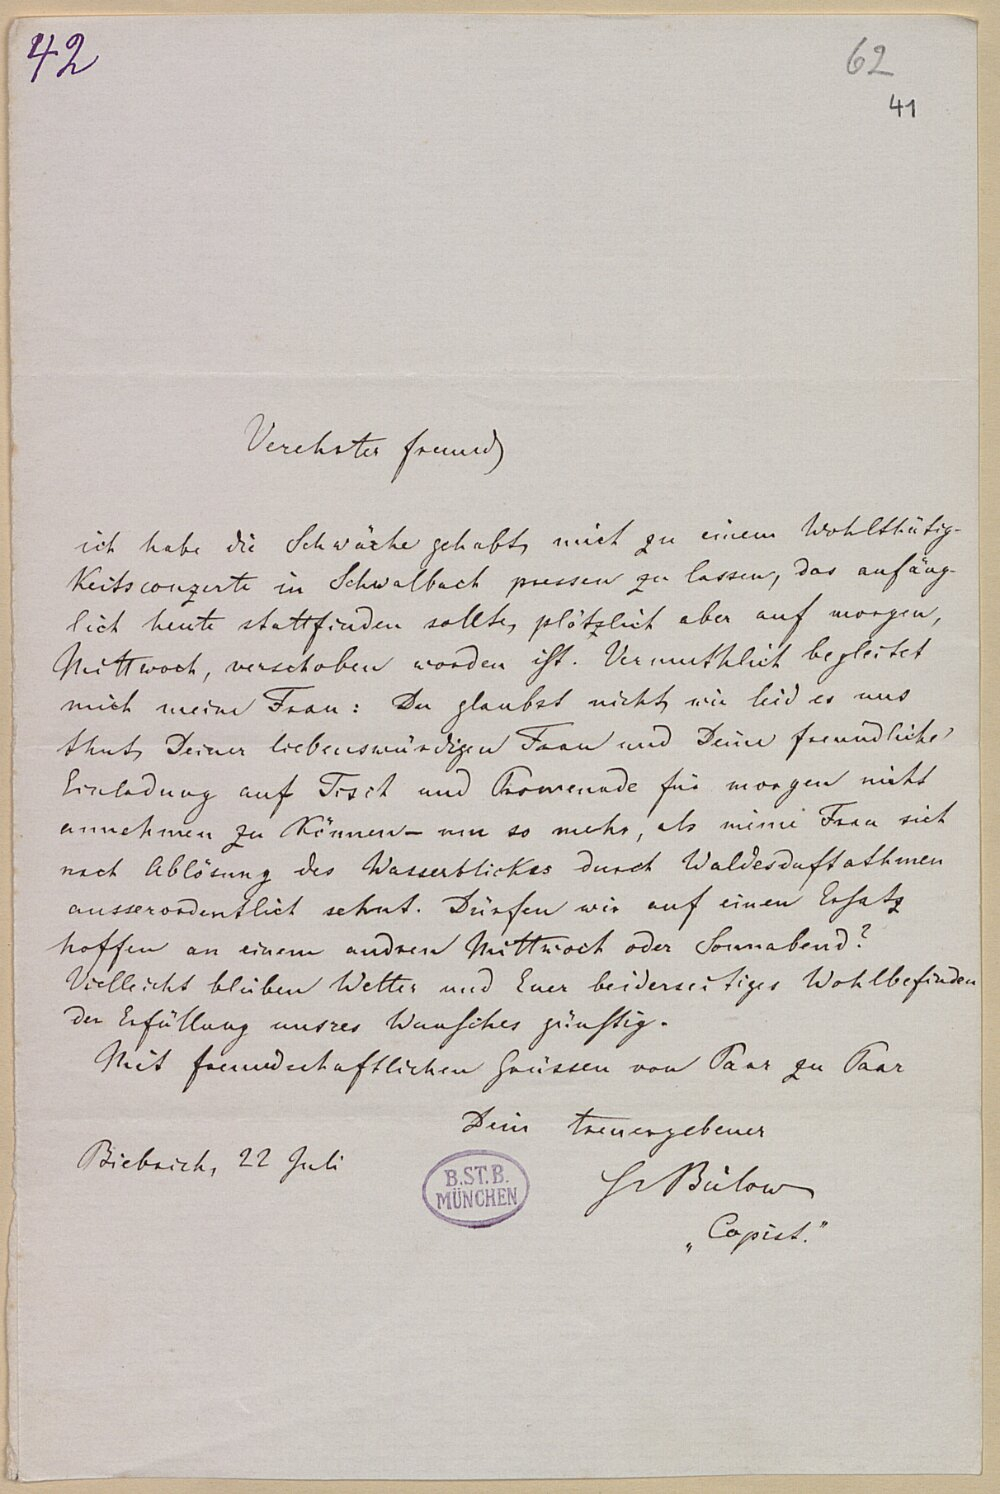 42
62
41
Verehrter Freund
ich habe die Schwäche gehabt, mich zu einem Wohlthätig-
keitsconzerte in Schwalbach pressen zu lassen, das anfäng-
lich heute stattfinden sollte, plötzlich aber auf morgen,
Mittwoch, verschoben worden ist. Vermuthlich begleitet
mich meine Frau: Du glaubst nicht, wie leid es uns
thut, Deiner liebenswürdigen Frau und Deine freundliche
Einladung auf Tisch und Promenade für morgen nicht
annehmen zu können – um so mehr, als meine Frau sich
nach Ablösung des Wasserblickes durch Waldesduftathmen
ausserordentlich sehnt. Dürfen wir auf einen Ersatz
hoffen an einem andren Mittwoch oder Sonnabend?
Vielleicht bleiben Wetter und Euer beiderseitiges Wohlbefinden
der Erfüllung unsres Wunsches günstig.
Mit freundschaftlichen Grüssen von Paar zu Paar
Dein treuergebener
Biebrich, 22 Juli
B.ST.B.
MÜNCHEN
Hv Bülow
„Copist."